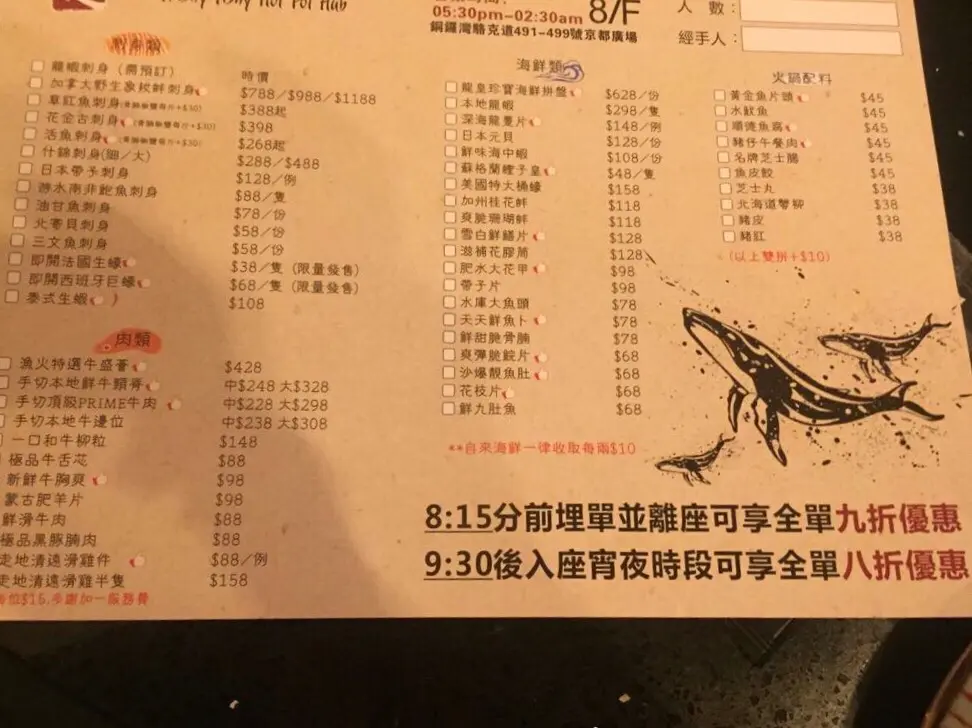 Hot Pot Hub
05:30pm-02:30am 8/F
銅鑼灣駱克道491-499號京都廣場
人 數：
經手人：
刺身類
龍蝦刺身 (需預訂) 時價
加拿大野生象拔蚌刺身 $788/$988/$1188
草紅魚刺身 $388起
花金古刺身 $398
活魚刺身 $268起
什錦刺身(細/大) $288/$488
日本帶子刺身 $128/例
游水南非鮑魚刺身 $88/隻
油甘魚刺身 $78/份
北寄貝刺身 $58/份
三文魚刺身 $58/份
即開法國生蠔 $38/隻 (限量發售)
即開西班牙巨蠔 $68/隻 (限量發售)
泰式生蝦 $108
肉類
漁火特選牛盛薈 $428
手切本地鮮牛頸脊 中$248 大$328
手切頂級PRIME牛肉 中$228 大$298
手切本地牛邊位 中$238 大$308
一口和牛柳粒 $148
極品牛舌芯 $88
新鮮牛胸爽 $98
蒙古肥羊片 $98
鮮滑牛肉 $88
極品黑豚腩肉 $88
走地清遠滑雞件 $88/例
走地清遠滑雞半隻 $158
每位$15,多謝加一服務費
海鮮類
龍皇珍寶海鮮拼盤 $628/份
本地龍蝦 $298/隻
深海龍躉片 $148/例
日本元貝 $128/份
鮮味海中蝦 $108/份
蘇格蘭蟶子皇 $48/隻
美國特大桶蠔 $158
加州桂花蚌 $118
爽脆珊瑚蚌 $118
雪白鮮鱔片 $128
滋補花膠筒 $128
肥水大花甲 $98
帶子片 $98
水庫大魚頭 $78
天天鮮魚卜 $78
鮮甜脆骨腩 $78
爽彈脆鯇片 $68
沙爆靚魚肚 $68
花枝片 $68
鮮九肚魚 $68
**自來海鮮一律收取每兩$10
火鍋配料
黃金魚片頭 $45
水魷魚 $45
順德魚腐 $45
豬仔午餐肉 $45
名牌芝士腸 $45
魚皮餃 $45
芝士丸 $38
北海道蟹柳 $38
豬皮 $38
豬紅 $38
(以上雙拼+$10)
8:15分前埋單並離座可享全單九折優惠
9:30後入座宵夜時段可享全單八折優惠